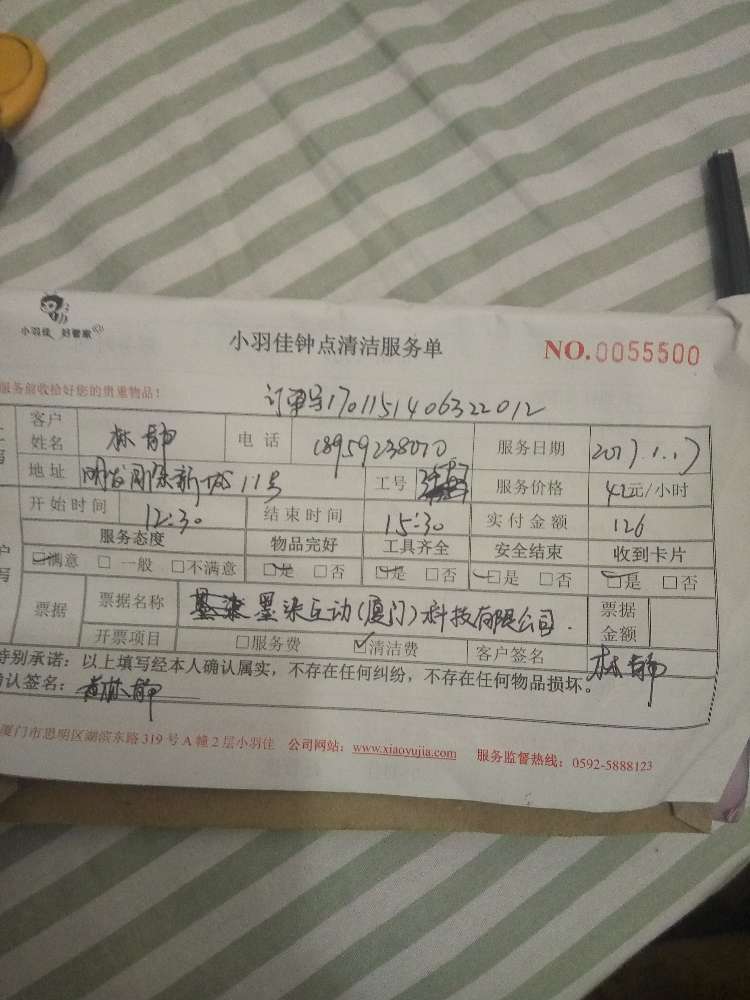 小羽佳 好管家
小羽佳钟点清洁服务单
NO.0055500
服务前收拾好您的贵重物品!
订单号1701151406322012
客户姓名 林静 电话 18959238070 服务日期 2017.1.17
地址 明发国际新城11号 工号 服务价格 42元/小时
开始时间 12:30 结束时间 15:30 实付金额 126
服务态度 物品完好 工具齐全 安全结束 收到卡片
☑满意 □一般 □不满意 ☑是 □否 ☑是 □否 ☑是 □否 ☑是 □否
票据 票据名称 墨染互动(厦门)科技有限公司. 票据金额
开票项目 □服务费 ☑清洁费 客户签名 林静
特别承诺:以上填写经本人确认属实,不存在任何纠纷,不存在任何物品损坏。
确认签名: 林静
厦门市思明区湖滨东路319号A幢2层小羽佳 公司网站:www.xiaoyujia.com 服务监督热线:0592-5888123